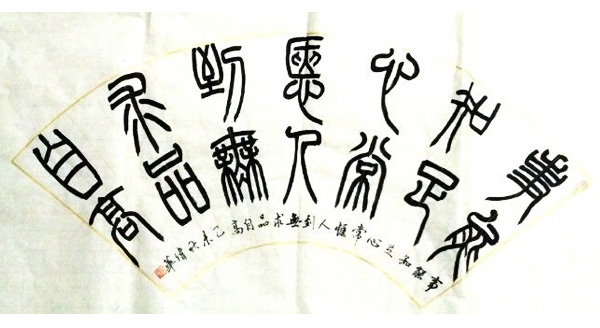 事能
知足
心常
愜人
到無
求品
自高
事能知足心常愜人到無求品自高乙未秋